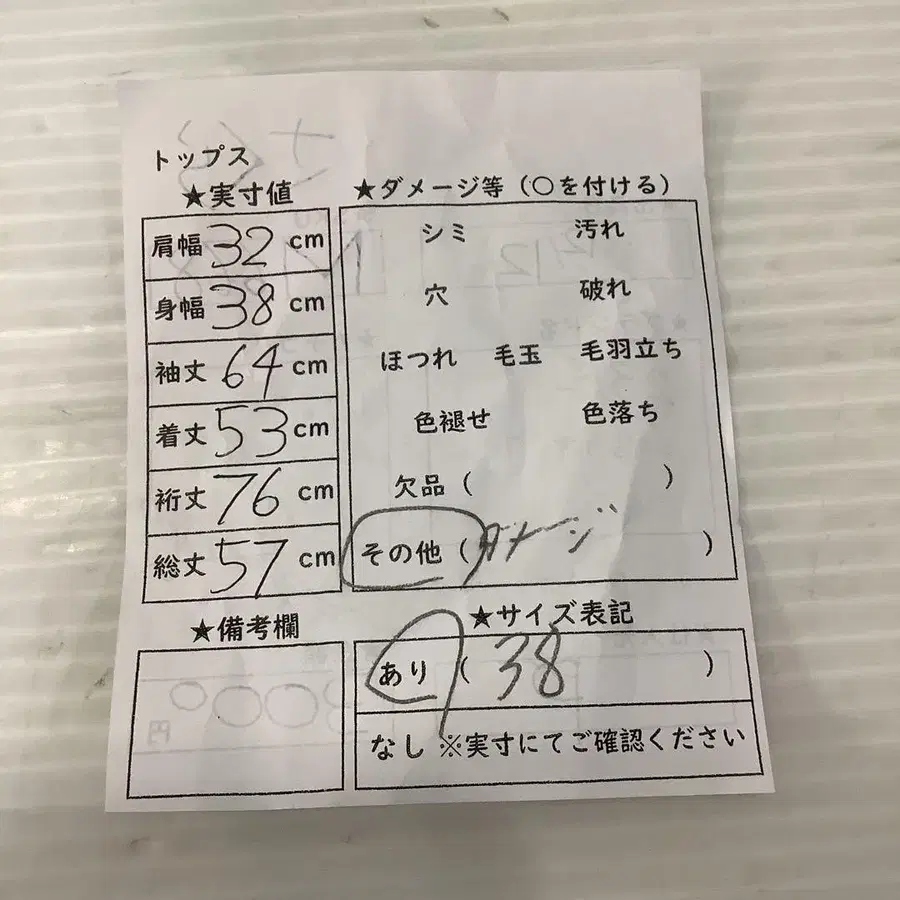 トップス
★実寸値
肩幅 32 cm
身幅 38 cm
袖丈 64 cm
着丈 53 cm
裄丈 76 cm
総丈 57 cm
★備考欄
★ダメージ等（○を付ける）
シミ 汚れ
穴 破れ
ほつれ 毛玉 毛羽立ち
色褪せ 色落ち
欠品（ ）
その他（ダメージ ）
★サイズ表記
あり（ 38 ）
なし ※実寸にてご確認ください